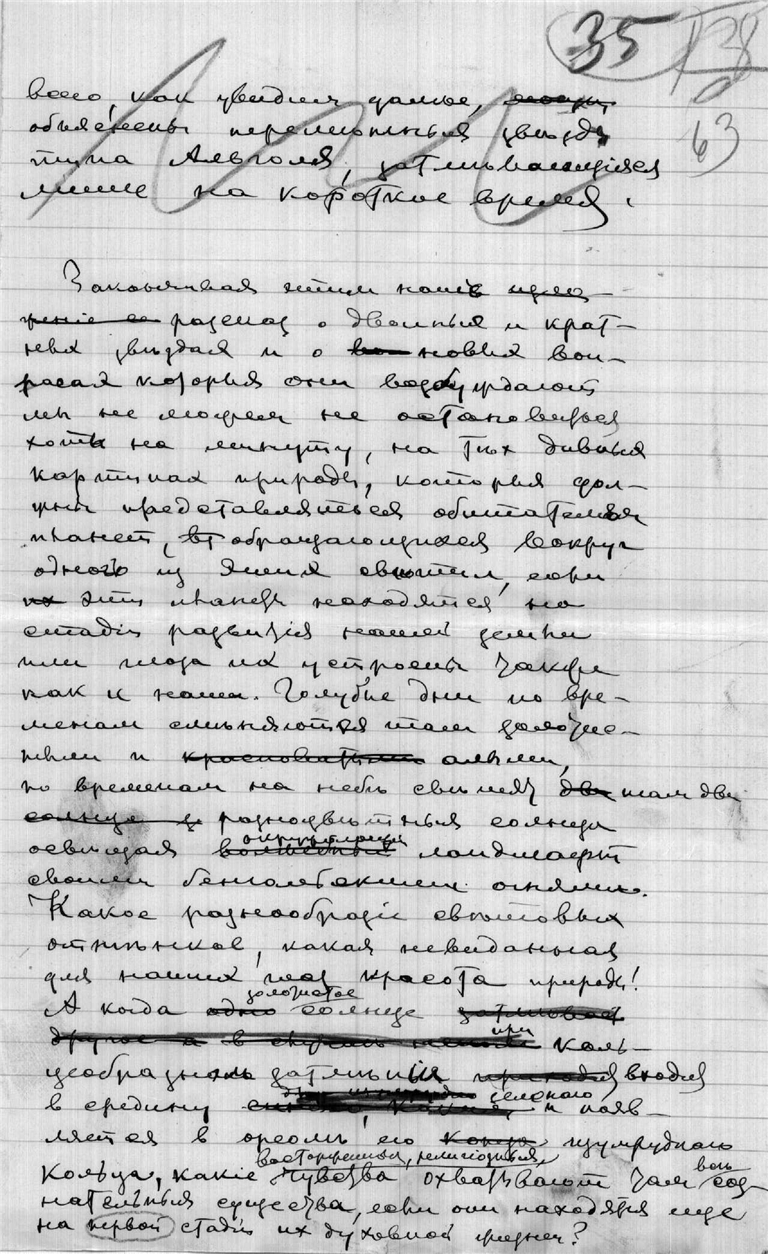 35
63
всего, как увидим далее,
объяснены переменныя звѣзды
типа Альголя, затмѣвающіяся
лише на короткое время.
Заканчивая этим наш изло-
женіе ее разсказ о двойных и крат-
ных звѣздах и о новых воп-
росах которыя они возбуждают
мы не можем не остановиться
хоть на минуту, на тѣх дивных
картинах природы, которыя дол-
жны представляться обитателям
планет, обращающихся вокруг
одного из таких свѣтил, если
эти планеты находятся на
стадіи развитія нашей земли
или глаза их устроены также
как и наши. Голубые дни по вре-
менам смѣняются там золоты-
ми и красноватыми алыми,
по временам на небѣ свѣтят два там два
солнца разноцвѣтныя солнца
окружающій
освѣщая волшебный ландшафт
своими бенгальскими огнями.
Какое разнообразіе свѣтовых
оттѣнков, какая невиданная
для наших глаз красота природы!
золотистое
А когда одно солнце затмѣвает
при
другое коль-
цеобразном затмѣніи приходя входит
зеленаго
в средину и появ-
ляется в ореолѣ его изумруднаго
восторженныя, религіозныя,
кольца, какіе чувства охватывают там соз-
нательныя существа, если они находятся еще
на первой стадіи их духовной жизни?